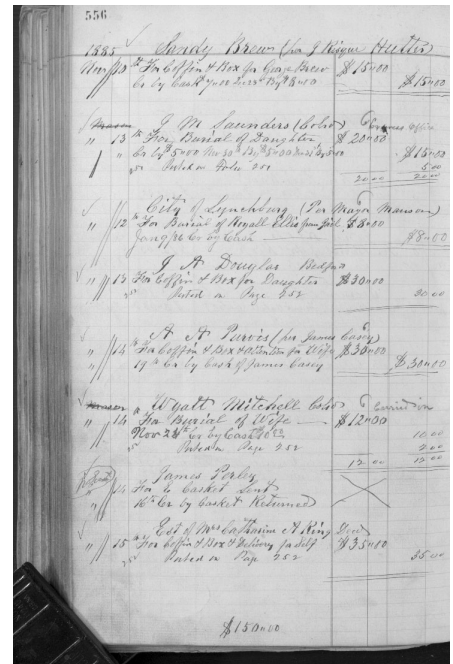 556
1885 Sandy Brew (for J Risque Hutter)
Nov 10 th For Coffin & Box for George Brew $15.00
Cr by Cash $15.00
J M Saunders (Cold)
" 13 th For Burial of Daughter $20.00
" Cr by 5.00 Nov 30th $15.00
Posted on Folio 250 5.00
20.00 20.00
City of Lynchburg (Per Mayor Manson)
" 12 th For Burial of Royall Ellis from Jail $8.00
Jany /86 Cr by Cash $8.00
J A Douglas Bedford
" 13 For Coffin & Box for Daughter $30.00
252 Posted on Page 252 30.00
A A Purvis (for James Casey)
" 14 th For Coffin & Box & attention for Wife $30.00
19th Cr by Cash of James Casey $30.00
Wyatt Mitchell Cold
" 14 For Burial of Wife $12.00
Nov 28th Cr by Cash 10.00 10.00
Posted on Page 252 2.00
12.00 12.00
James Perley
" 14 For Casket Sent
16th Cr by Casket Returned
Est of Mrs Catharine A King Decd
" 15 th For Coffin & Box & Delivery for Self $35.00
252 Posted on Page 252 35.00
$150.00